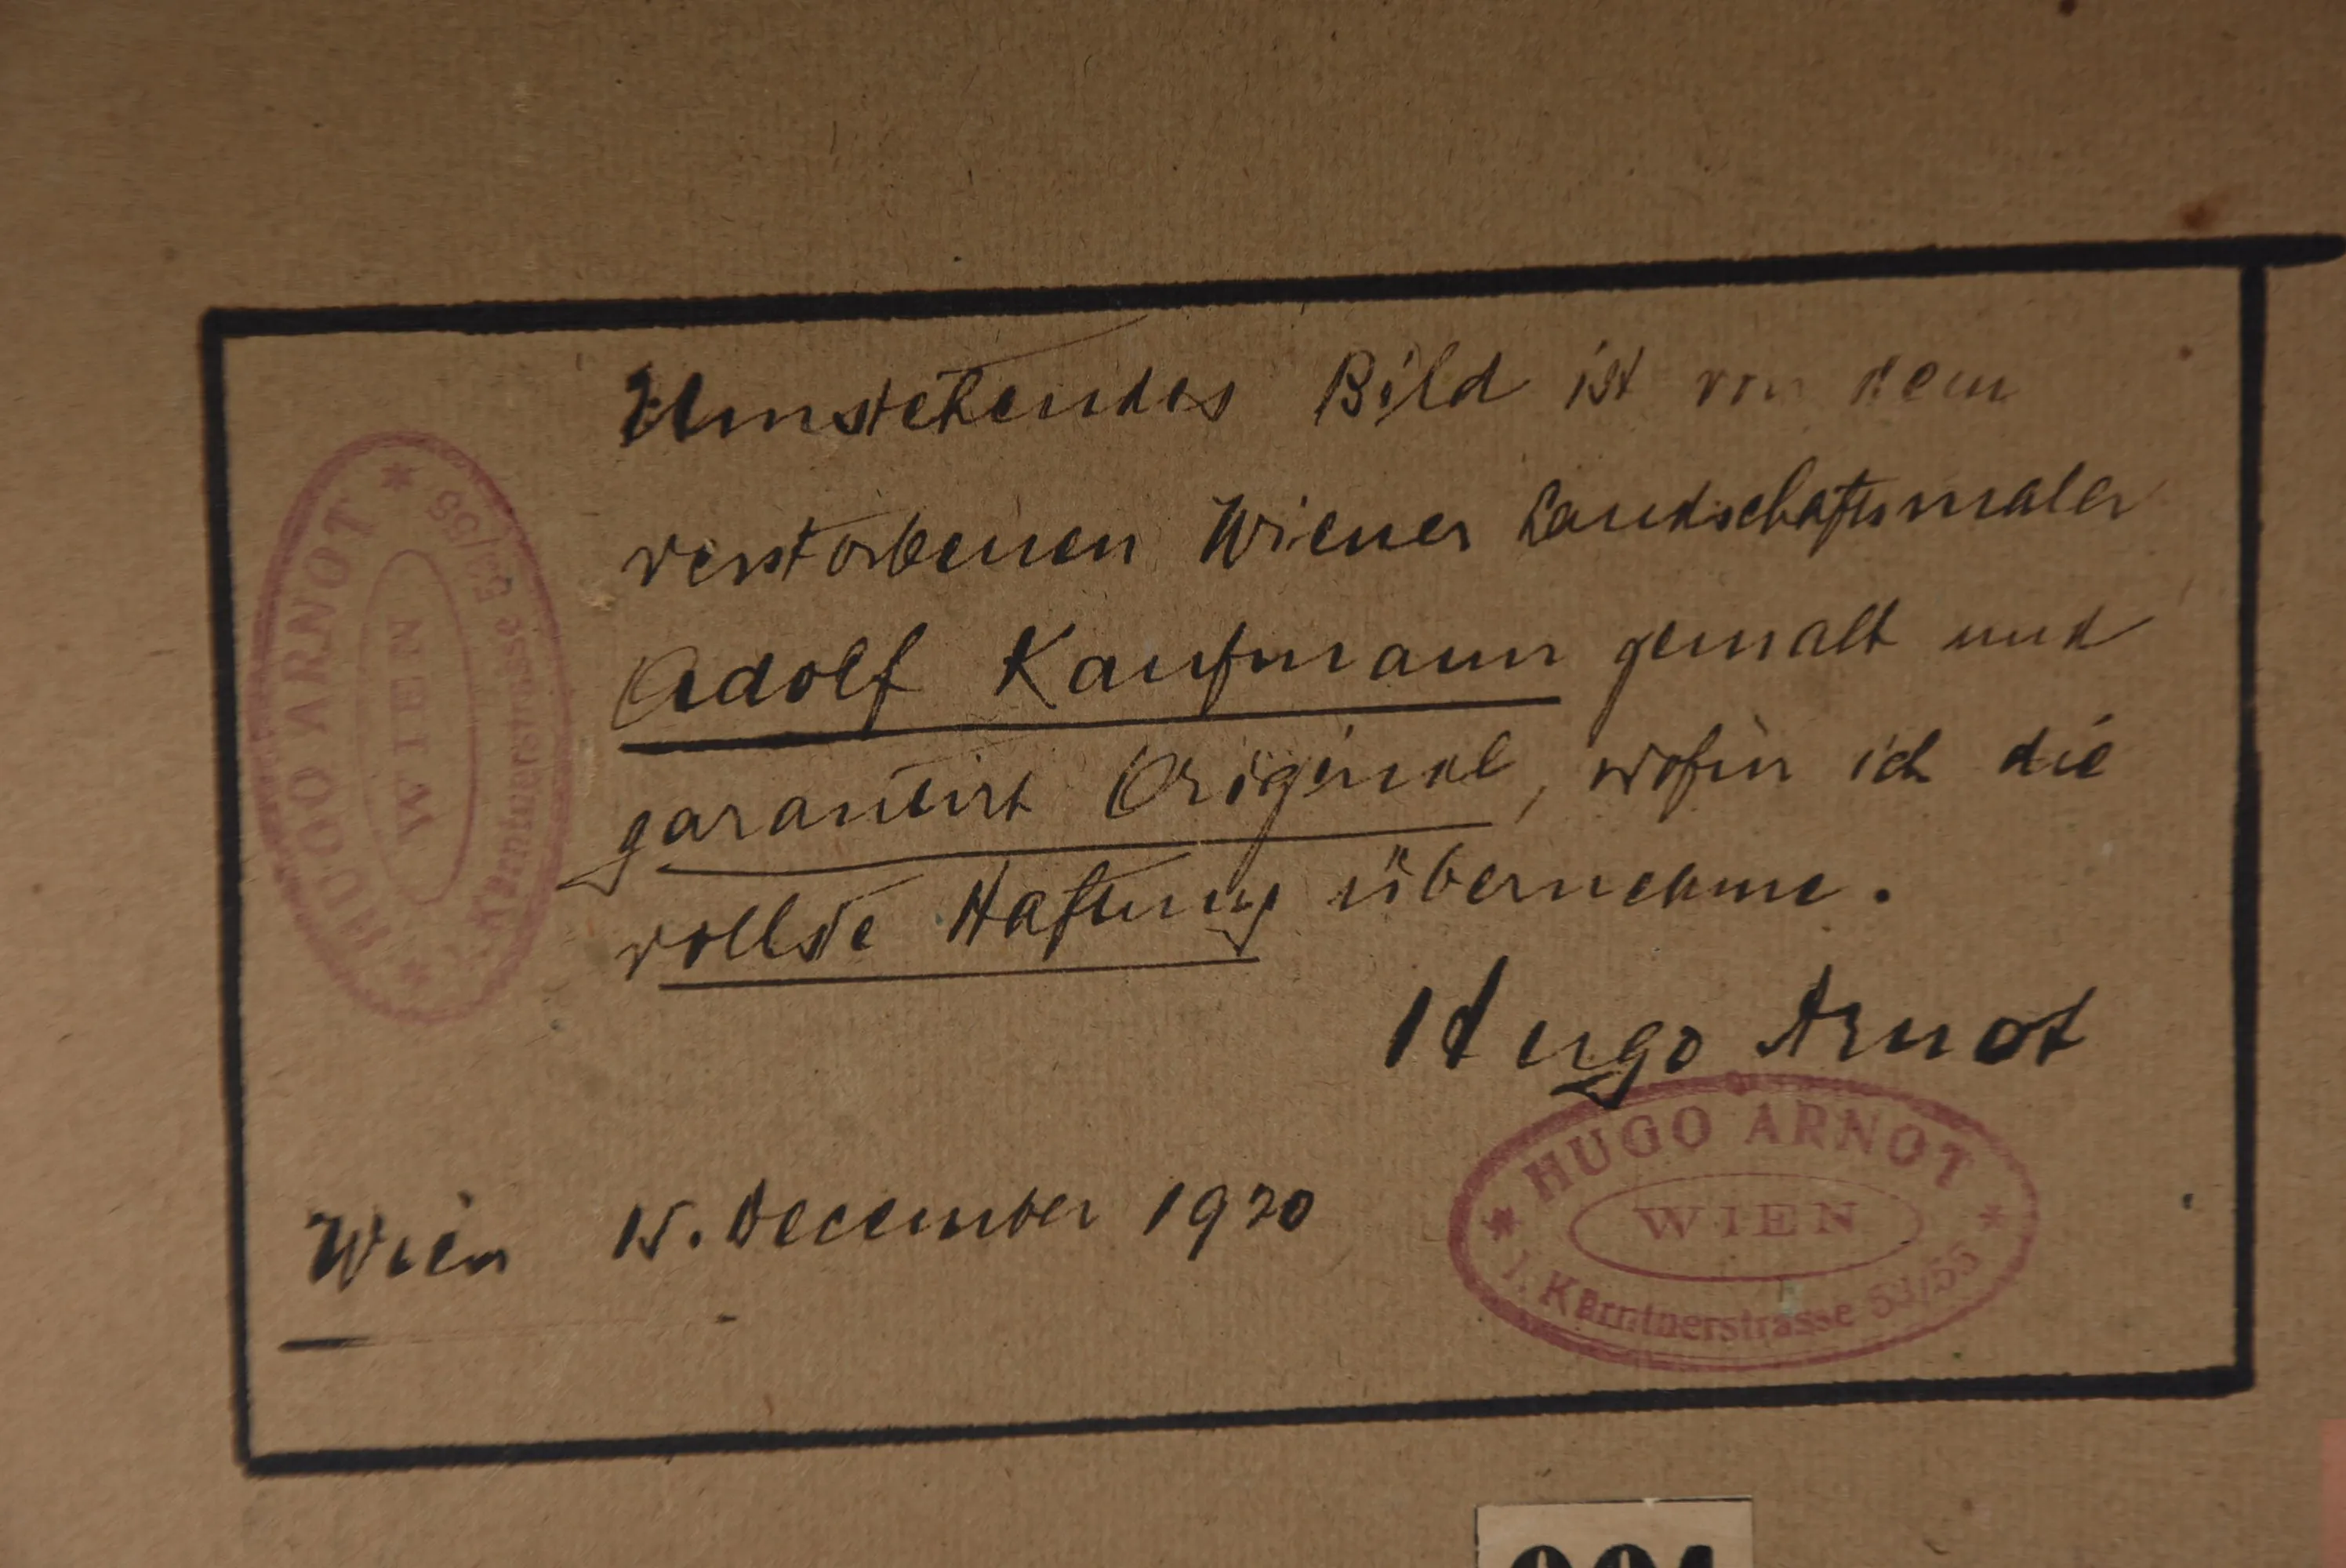 Umstehendes Bild ist von dem
verstorbenen Wiener Landschaftsmaler
Adolf Kaufmann gemalt und
garantirt Original, wofür ich die
vollste Haftung übernehme.
Hugo Arnot
Wien 15. December 1920
* HUGO ARNOT *
WIEN
I. Kärntnerstrasse 53/55
* HUGO ARNOT *
WIEN
I. Kärntnerstrasse 53/55